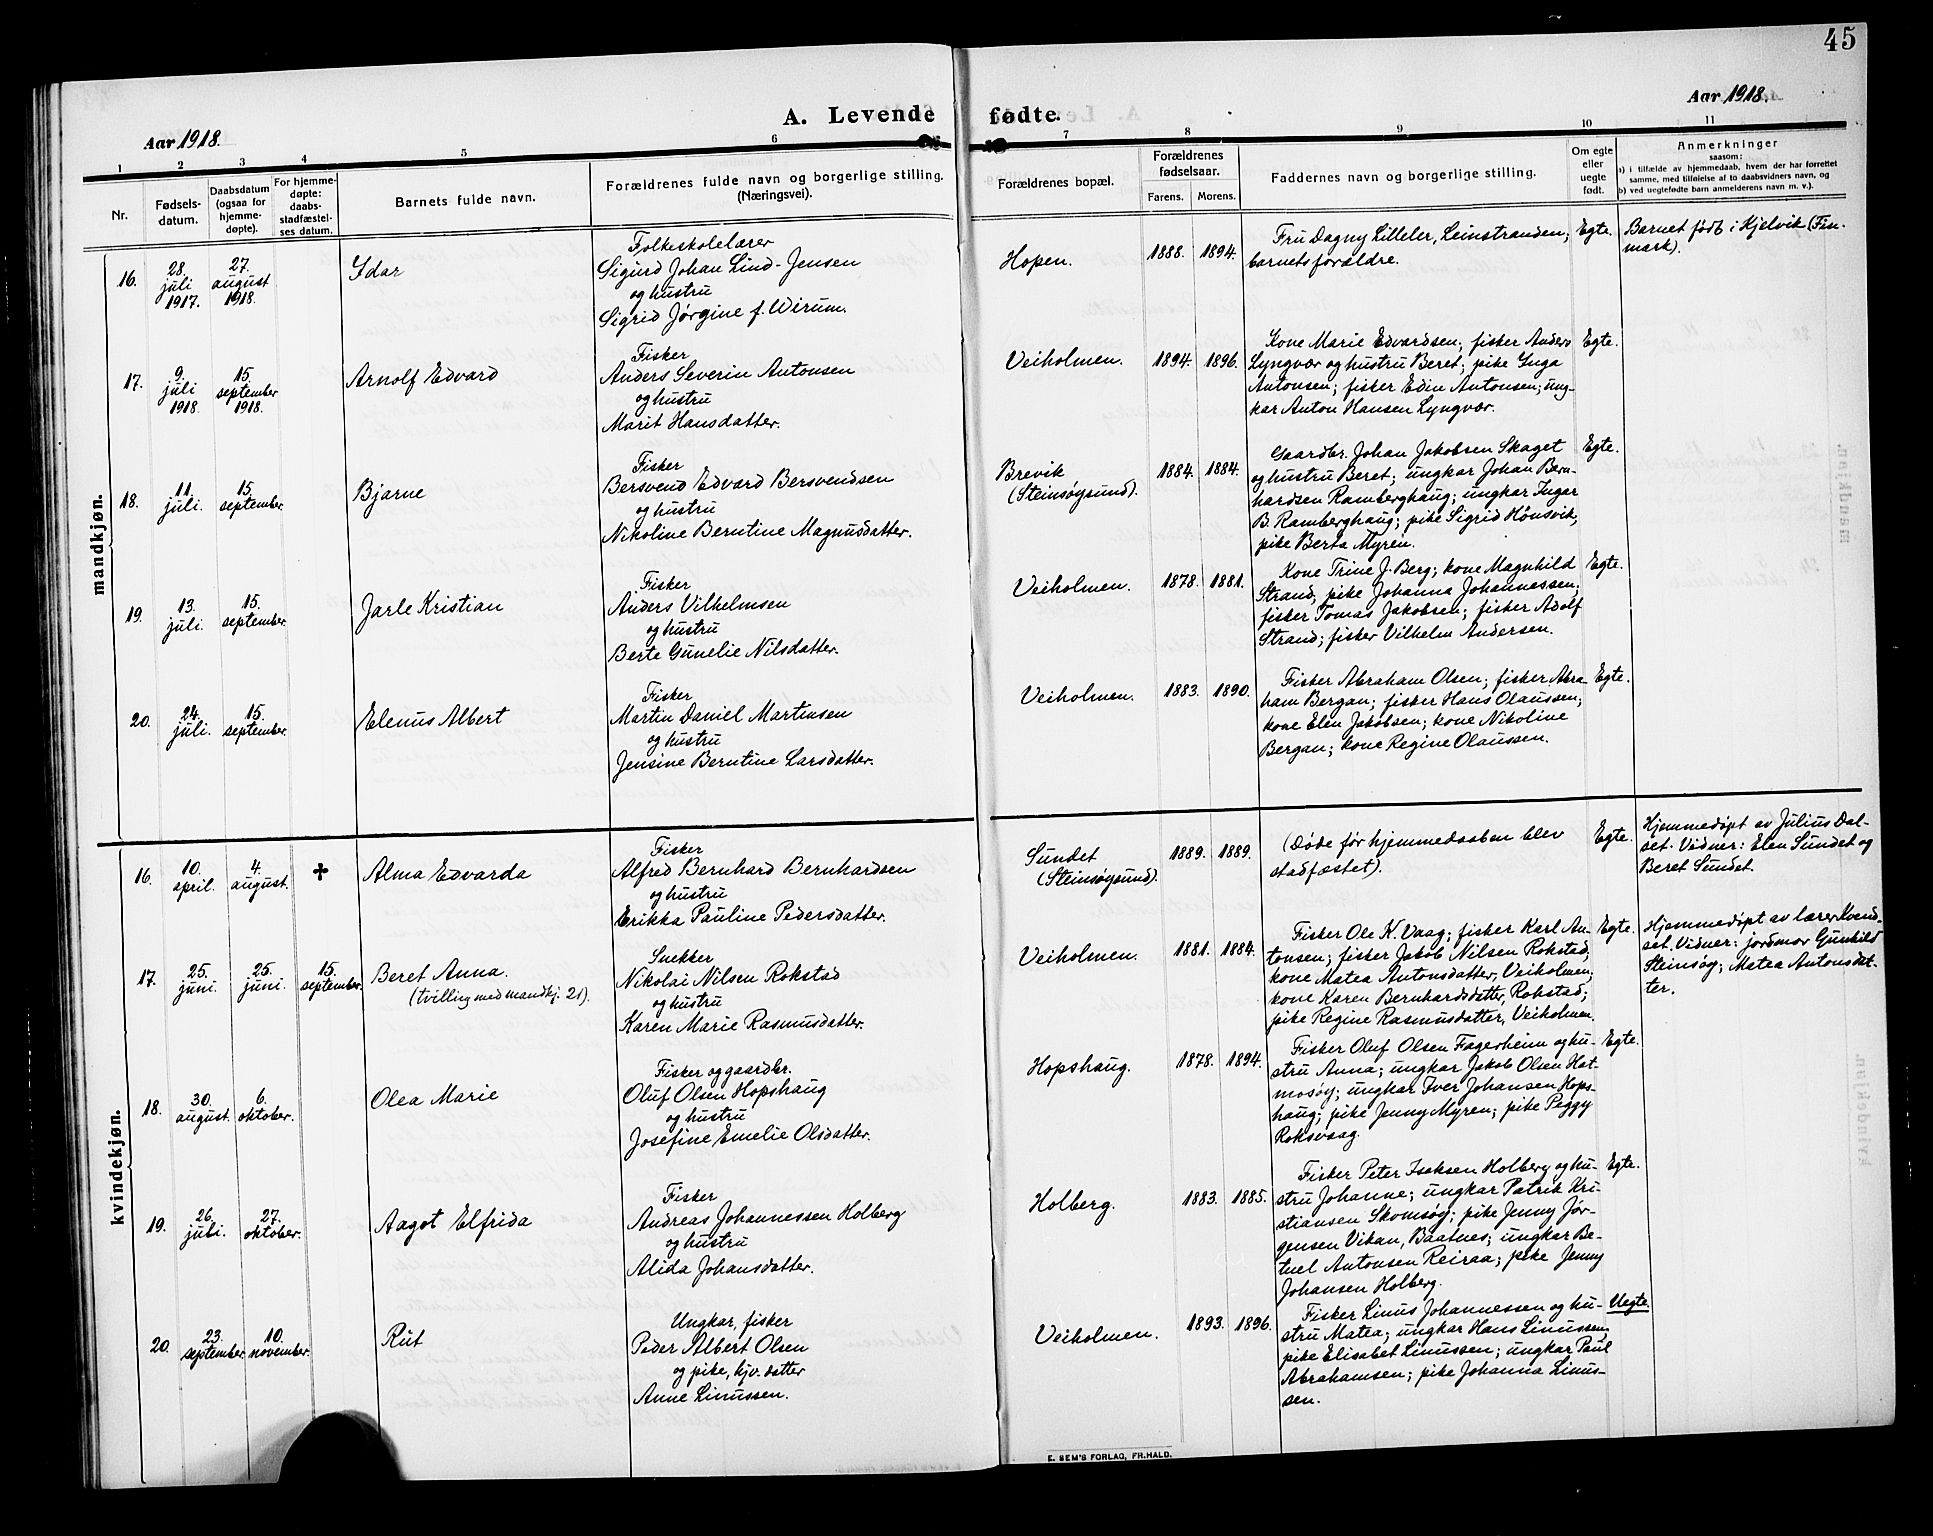 45
A. Levende fødte.
Aar 1918.
Aar 1918.
1 2 3 4 5 6 7 8 9 10 11
Nr.
Fødsels-
datum.
Daabsdatum
(ogsaa for
hjemme-
døpte).
For hjemme-
døpte:
daabs-
stadfæstel-
ses datum.
Barnets fulde navn.
Forældrenes fulde navn og borgerlige stilling.
(Næringsvei).
Forældrenes bopæl.
Forældrenes
fødselsaar.
Farens. Morens.
Faddernes navn og borgerlige stilling.
Om egte
eller
uegte
født.
Anmerkninger
saasom:
a) i tilfælde av hjemmedaab, hvem der har forrettet
samme, med tilføielse af to daabsvidners navn, og
b) ved uegtefødte barn anmelderens navn m. v.).
mandkjøn.
16.
28.
juli
1917.
27.
august
1918.
Idar
Folkeskolelærer
Sigurd Johan Lind-Jensen
og hustru
Sigrid Jørgine f. Wirum.
Hopen.
1888. 1894.
Fru Dagny Lilleler, Leinstranden;
barnets forældre.
Egte.
Barnet født i Kjelvik (Fin-
mark).
17.
9.
juli
1918.
15.
september
1918.
Arnolf Edvard
Fisker
Anders Severin Antonsen
og hustru
Marit Hansdatter.
Veiholmen.
1894. 1896.
Kone Marie Edvardsen; fisker Anders
Lyngvær og hustru Beret; pike Inga
Antonsen; fisker Edin Antonsen; ung-
kar Anton Hansen Lyngvær.
Egte.
18.
11.
juli.
15.
september
Bjarne
Fisker
Bersvend Edvard Bersvendsen
og hustru
Nikoline Berntine Magnusdatter.
Brevik
(Steinsøysund).
1884. 1884.
Gaardbr. Johan Jakobsen Skaget
og hustru Beret; ungkar Johan Bern-
hardsen Ramberghaug; ungkar Ingar
B. Ramberghaug; pike Sigrid Hønsvik;
pike Berta Myren.
Egte.
19.
13.
juli.
15.
september.
Jarle Kristian
Fisker
Anders Vilhelmsen
og hustru
Berte Gunelie Nilsdatter.
Veiholmen.
1878. 1881.
Kone Trine J. Berg; kone Magnhild
Strand; pike Johanna Johannessen;
fisker Tomas Jakobsen; fisker Adolf
Strand; fisker Vilhelm Andersen.
Egte.
20.
24.
juli.
15.
september.
Elenus Albert
Fisker
Martin Daniel Martinsen
og hustru
Jensine Berntine Larsdatter.
Veiholmen.
1883. 1890.
Fisker Abraham Olsen; fisker Abra-
ham Bergan; fisker Hans Olaussen;
kone Elen Jakobsen; kone Nikoline
Bergan; kone Regine Olaussen.
Egte.
kvindekjøn.
16.
10.
april.
4.
august.
✝
Alma Edvarda
Fisker
Alfred Bernhard Bernhardsen
og hustru
Erikka Pauline Pedersdatter.
Sundet
(Steinsøysund).
1889. 1889.
(Døde før hjemmedaaben blev
stadfæstet).
Egte.
Hjemmedøpt av Julius Dal-
set. Vidner: Elen Sundet og
Beret Sundet.
17.
25.
juni.
25.
juni.
15.
september.
Beret Anna.
(tvilling med mandkj. 21).
Snekker
Nikolai Nilsen Rokstad
og hustru
Karen Marie Rasmusdatter.
Veiholmen.
1881. 1884.
Fisker Ole K. Vaag; fisker Karl An-
tonsen; fisker Jakob Nilsen Rokstad;
kone Matea Antonsdatter, Veiholmen;
kone Karen Bernhardsdatter, Rokstad;
pike Regine Rasmusdatter, Veiholmen.
Egte.
Hjemmedøpt av lærer Kvend-
set. Vidner: jordmor Gunhild
Steinsøy; Matea Antonsdat-
ter.
18.
30.
august.
6.
oktober.
Olea Marie
Fisker og gaardbr.
Oluf Olsen Hopshaug
og hustru
Josefine Emelie Olsdatter.
Hopshaug.
1878. 1894.
Fisker Oluf Olsen Fagerheim og hu-
stru Anna; ungkar Jakob Olsen Hat-
mosøy; ungkar Iver Johansen Hops-
haug; pike Jenny Myren; pike Peggy
Roksvaag.
Egte.
19.
26.
juli.
27.
oktober.
Aagot Elfrida
Fisker
Andreas Johannessen Holberg
og hustru
Alida Johansdatter.
Holberg.
1883. 1885.
Fisker Peter Isaksen Holberg og hu-
stru Johanne; ungkar Patrik Kri-
stiansen Skomsøy; pike Jenny Jør-
gensen Vikan, Baatnes; ungkar Be-
tuel Antonsen Reiraa; pike Jenny
Johansen Holberg.
Egte.
20.
23.
september.
10.
november.
Rut
Ungkar, fisker
Peder Albert Olsen
og pike, hjv. datter
Anne Linussen.
Veiholmen.
1893. 1896.
Fisker Linus Johannessen og hu-
stru Matea; ungkar Hans Linussen;
pike Elisabet Linussen; ungkar Paul
Abrahamsen; pike Johanna Linus-
sen.
Uegte.
E. SEM'S FORLAG, FR.HALD.